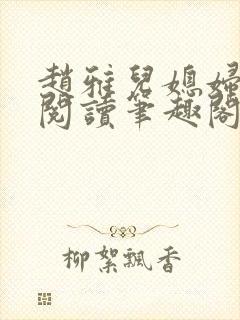 趙雅兒媳婦
閱讀筆趣閣
柳絮飄香